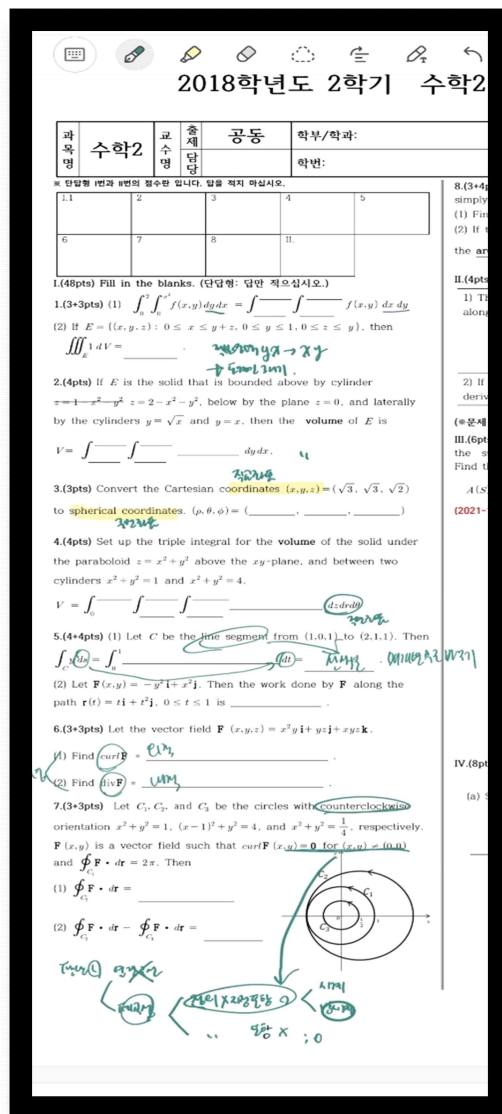 2018학년도 2학기 수학2
과목명 수학2 교수명 출제 담당 공동 학부/학과:
학번:
※ 단답형 I번과 II번의 점수란 입니다. 답을 적지 마십시오.
1.1 2 3 4 5
6 7 8 II.
I.(48pts) Fill in the blanks. (단답형: 답만 적으십시오.)
1.(3+3pts) (1) ∫₀² ∫₀^{x²} f(x,y) dy dx = ∫ ∫ f(x,y) dx dy
(2) If E = {(x,y,z) : 0 ≤ x ≤ y+z, 0 ≤ y ≤ 1, 0 ≤ z ≤ y}, then
∭_E 1 dV = ________.
yx → xy
2.(4pts) If E is the solid that is bounded above by cylinder
z=1-x²-y² z=2-x²-y², below by the plane z=0, and laterally
by the cylinders y=√x and y=x, then the volume of E is
V= ∫ ∫ ________ dydx. "
직교좌표
3.(3pts) Convert the Cartesian coordinates (x,y,z)=(√3, √3, √2)
to spherical coordinates. (ρ,θ,φ) = (______, ______, ______)
4.(4pts) Set up the triple integral for the volume of the solid under
the paraboloid z=x²+y² above the xy-plane, and between two
cylinders x²+y²=1 and x²+y²=4.
V = ∫₀ ∫ ∫ ________ dzdrdθ
5.(4+4pts) (1) Let C be the line segment from (1,0,1) to (2,1,1). Then
∫_C y ds = ∫₀¹ ________ dt = ________. 매개변수로 바꾸기
(2) Let F(x,y) = -y²i + x²j. Then the work done by F along the
path r(t) = ti + t²j, 0 ≤ t ≤ 1 is ________.
6.(3+3pts) Let the vector field F (x,y,z) = x²y i + yz j + xyz k.
(1) Find curl F = 외적 ________.
(2) Find div F = 내적 ________.
7.(3+3pts) Let C₁, C₂, and C₃ be the circles with counterclockwise
orientation x²+y²=1, (x-1)²+y²=4, and x²+y²=1/4, respectively.
F (x,y) is a vector field such that curl F (x,y)=0 for (x,y) ≠ (0,0)
and ∮_{C₁} F • dr = 2π. Then
(1) ∮_{C₂} F • dr = ________
(2) ∮_{C₂} F • dr - ∮_{C₃} F • dr = ________
C₂
C₁
C₃
시계
반시계
" 포함 x ; 0
8.(3+4p
simply
(1) Fin
(2) If t
the ar
II.(4pts
1) Th
along
2) If
deriv
(※문제
III.(6pt
the s
Find t
A(S
(2021-
IV.(8pt
(a) S